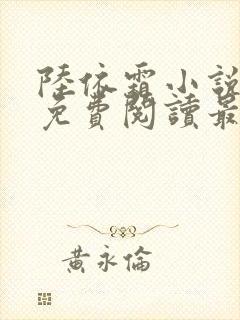 陸依霜小說
免費閱讀最
黃永倫